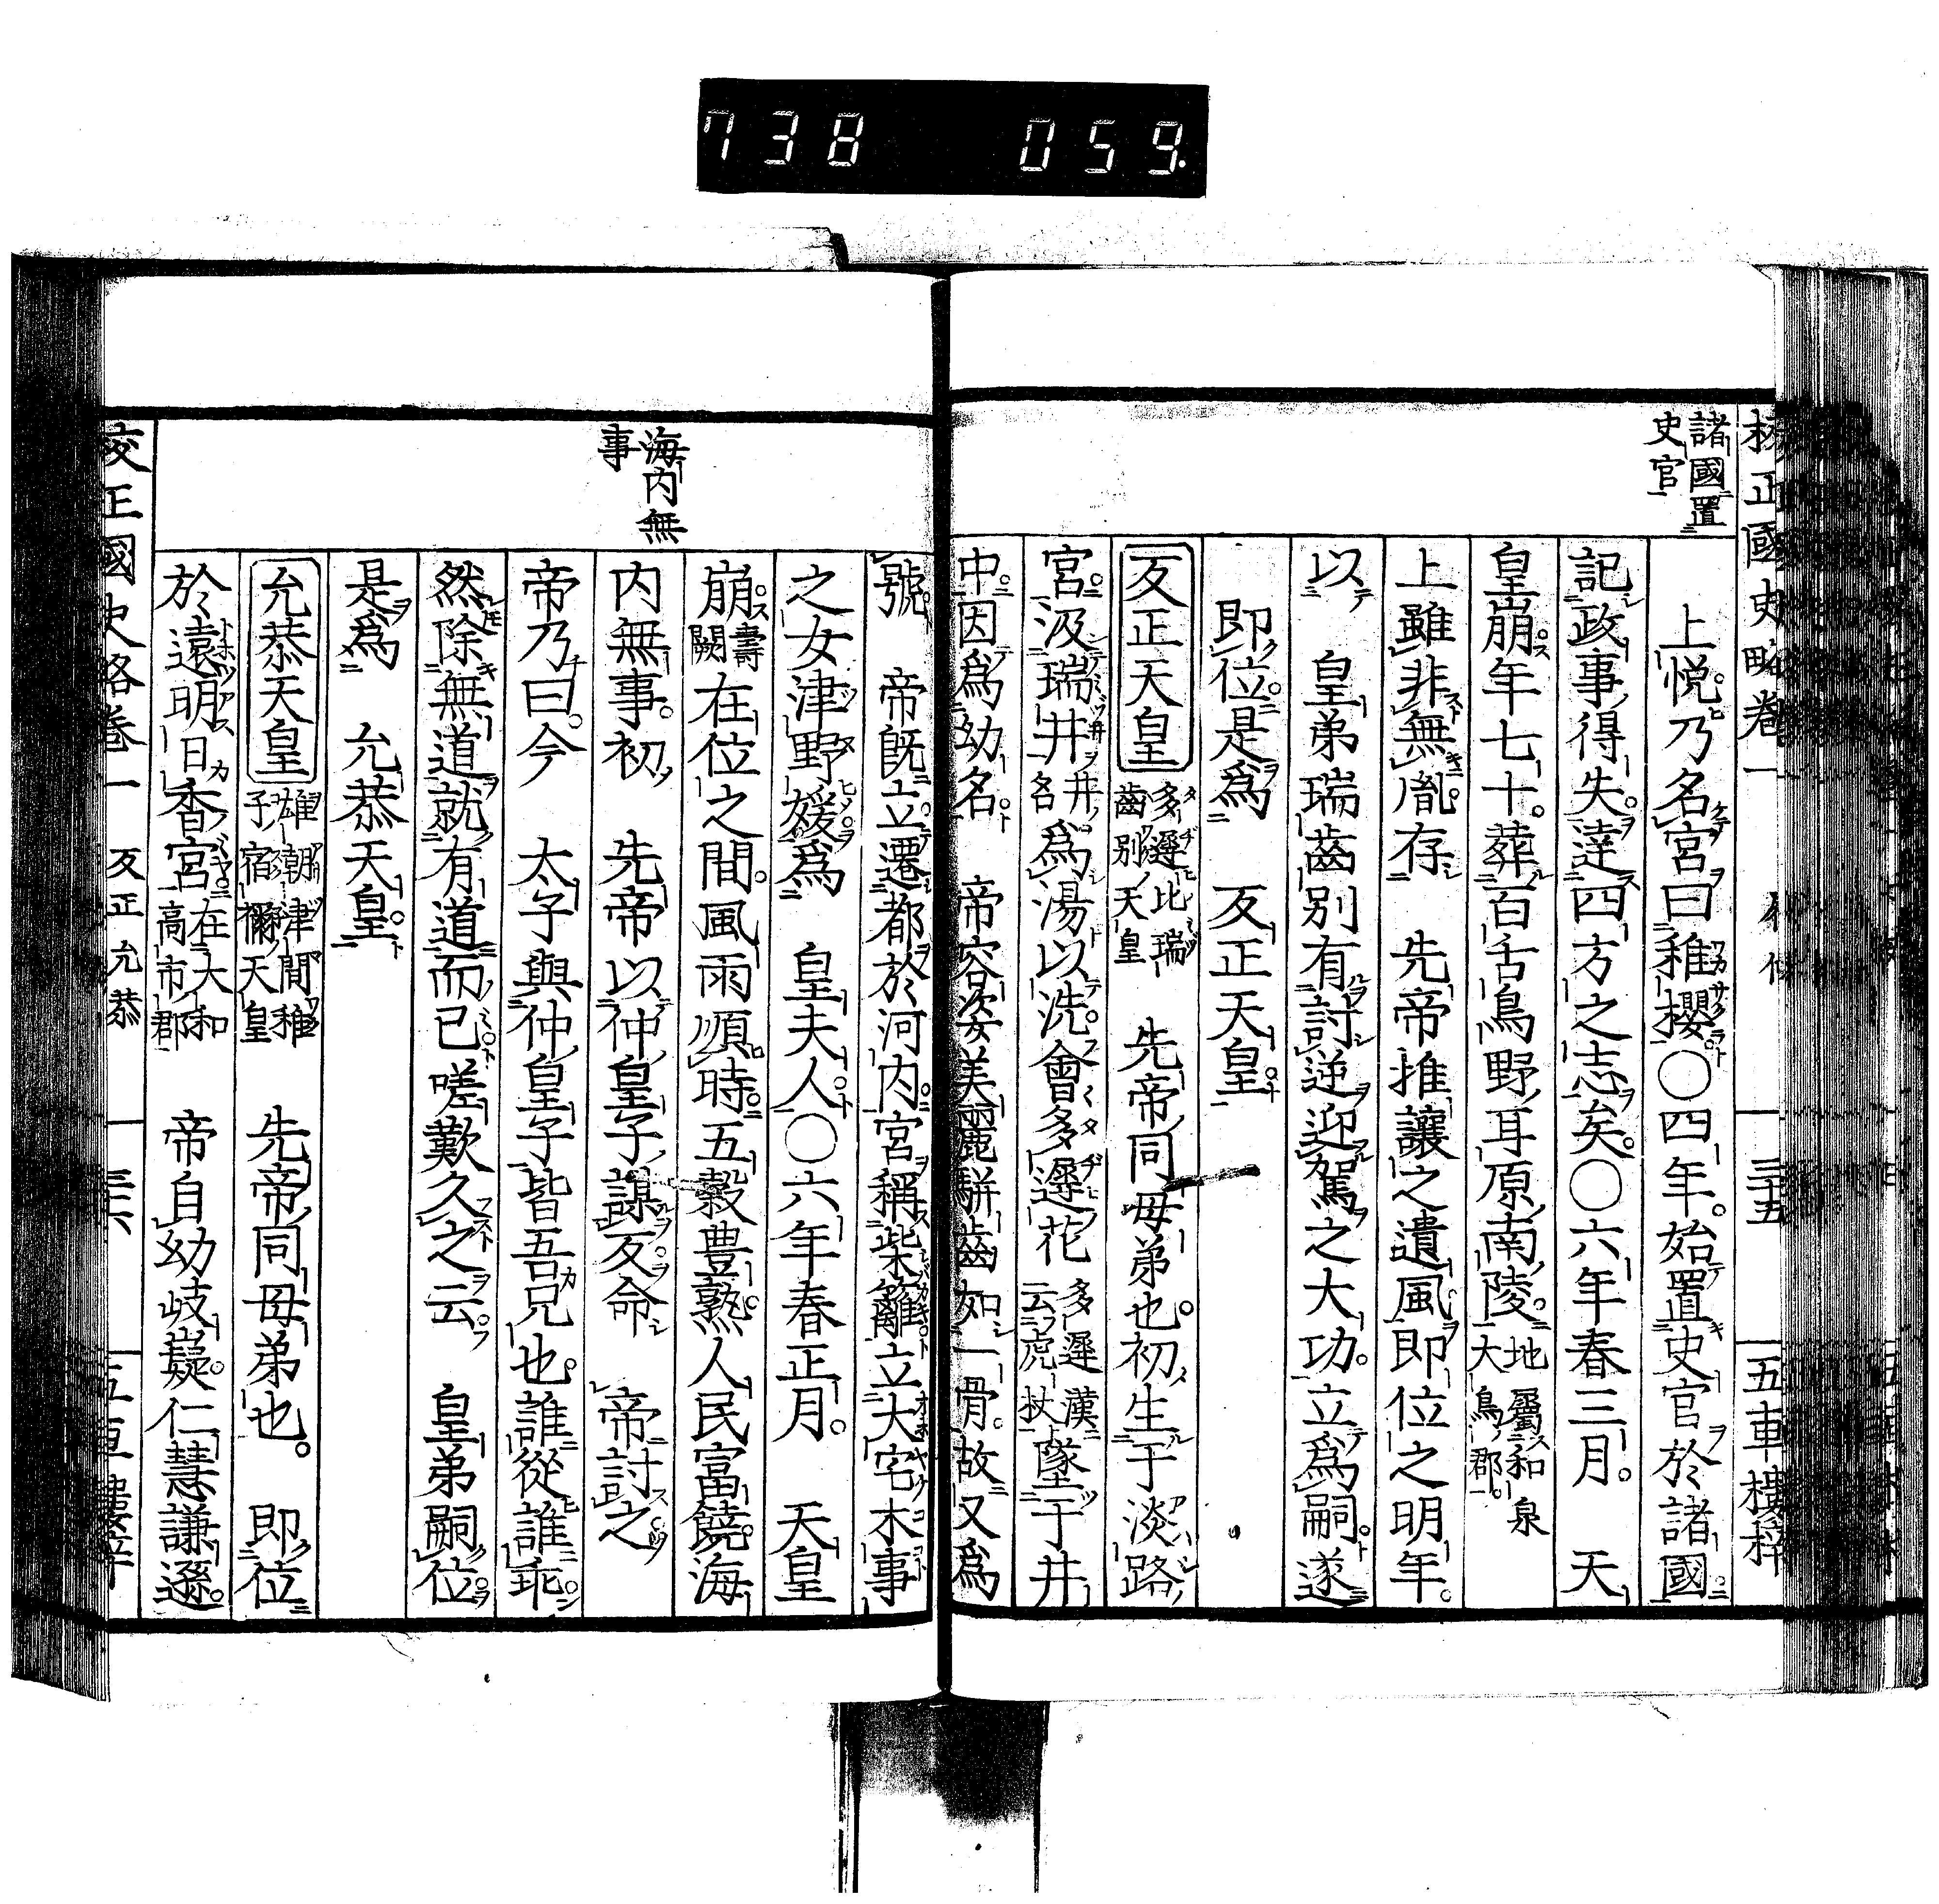 738 059.
校正國史略卷一
三十五
五車樓梓
諸國置
史官
上悦乃名宮曰稚櫻○四年。始置史官於諸國
記政事得失。達四方之志矣。○六年春三月。 天
皇崩年七十。葬百舌鳥野耳原南陵。地屬和泉大鳥郡。
上雖非無胤存 先帝推讓之遺風即位之明年。
以 皇弟瑞齒別有討逆迎駕之大功。立爲嗣遂
即位是爲 反正天皇
反正天皇 多遲比瑞齒別天皇 先帝同母弟也。初生于淡路
宮。汲瑞井井名爲湯以洗。會多遲花多遲漢云虎杖墜于井
中。因爲幼名。 帝容姿美麗駢齒如一骨。故又爲
號 帝既立遷都於河内。宮稱柴籬立大宅木事
之女津野媛爲 皇夫人○六年春正月。 天皇
崩壽闕在位之間。風雨順時。五穀豊熟人民富饒。海
内無事。初 先帝以仲皇子謀反命 帝討之
帝乃曰。今 太子與仲皇子皆吾兄也。誰從誰乖
然除無道就有道而已嗟歎久之云 皇弟嗣位
是爲 允恭天皇
允恭天皇 雄朝津間稚子宿禰天皇 先帝同母弟也。 即位
於遠明日香宮在大和高市郡 帝自幼岐嶷。仁慧謙遜。
海内無
事
校正國史略卷一 反正 允恭
三十六
五車樓梓